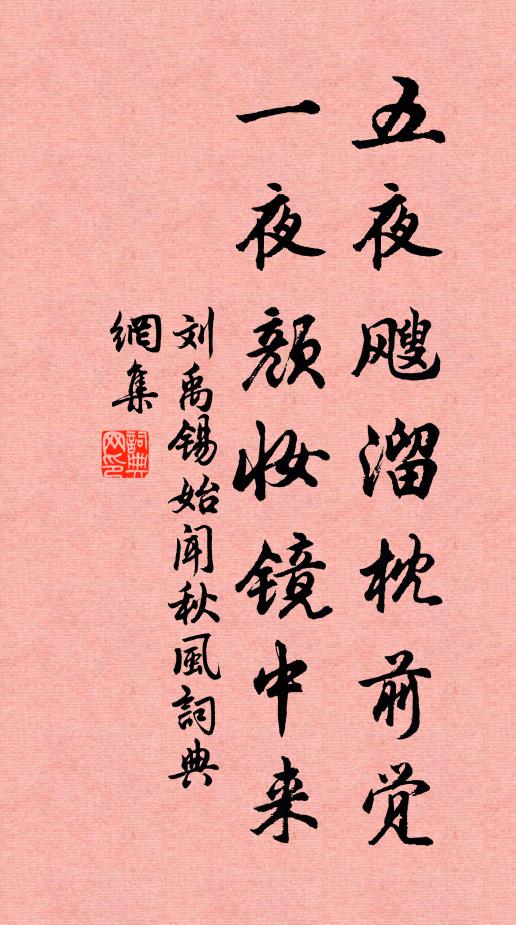 五夜飕溜枕前觉
一夜颜妆镜中来
刘禹锡始闻秋风詞典
網集
詞典
网印